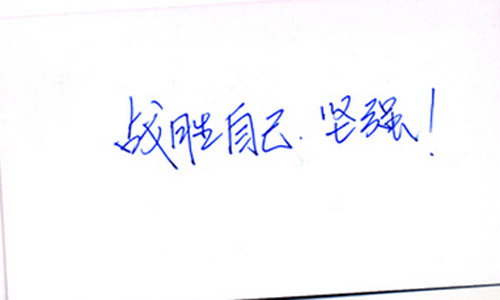 战胜自己.坚强!